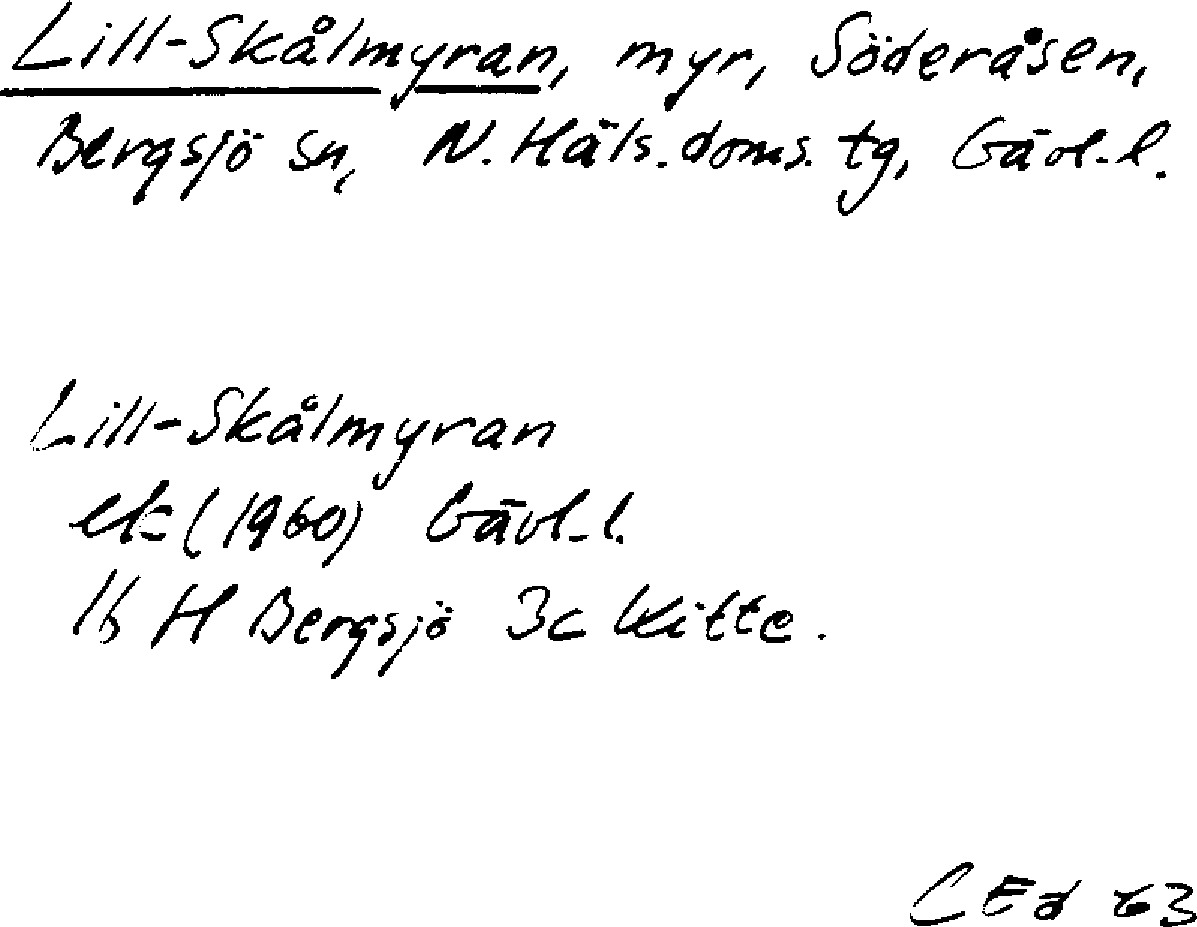 Lill-Skålmyran, myr, Söderåsen,
Bergsjö sn, N. Häls. doms. tg, Gävl-l.
Lill-Skålmyran
ek (1960) Gävl-l.
16 H Bergsjö 3c Kitte.
CEd 63